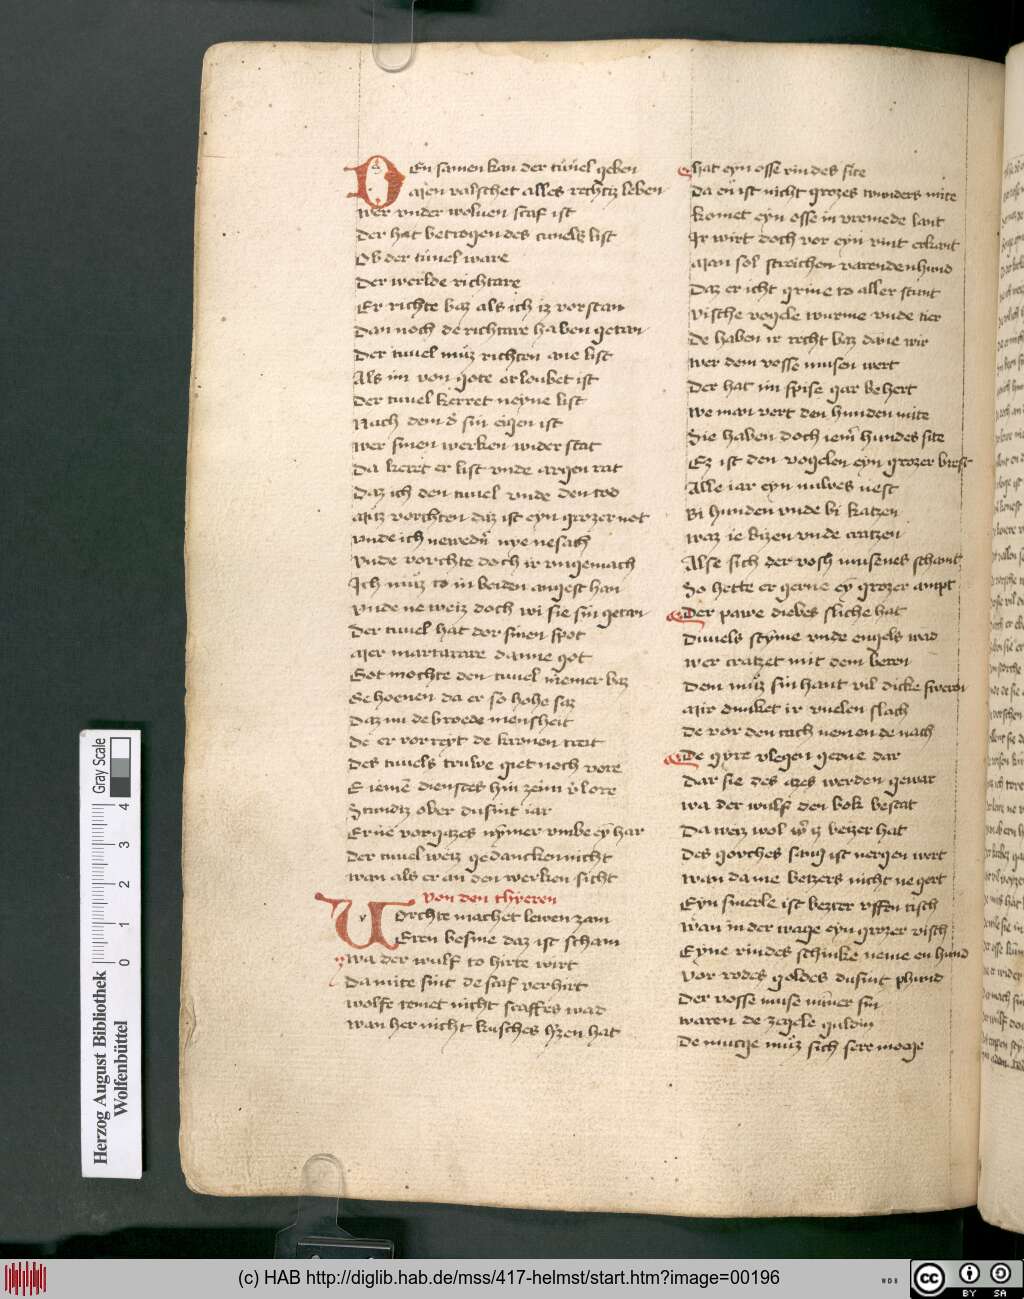 DEn samen kan der tuuel geben
Men valschet alles rechtiz leben
wer vnder woluen scaf ist
Der hat betrogen des tuuels list
Ob der tuuel ware
Der werlde richtare
Er richte baz als ich iz vorstan
Dan noch de richtare haben getan
Der tuuel muz richten ane list
Als im von gote orloubet ist
Der tuuel kerret neyne list
Nach dem d' sin eigen ist
wer sinen werken wider stat
Da keret er list vnde argen rat
Daz ich den tuuel vnde den tod
Muz vorchten daz ist eyn grozer not
vnde ich newedn' nye nesach
vnde vorchte doch ir vngemach
Ich muz to in beiden angest han
vnde ne weiz doch wi sie sin getan
Der tuuel hat dor sinen spot
Mer martarare danne got
Got mochte den tuuel niemer baz
Gehoenen da er so hohe saz
Daz nu de broede mensheit
De er vorreyt de kronen treit
Des tuuels truwe giet noch vore
E ieme dienstes hin zenn v'lore
Stundiz ober dusint iar
Erne vorgizes nymer vmbe ey har
Der tuuel weiz gedancken nicht
wan als er an den werken sicht
von den thyeren
Vorchte machet lewen zam
Eren besme daz ist scham
Swa der wulf to hirte wirt
Da mite sint de scaf verhirt
wolfe temet nicht scaffes wad
wan her nicht kusches h'zen hat
Ehat eyn osse rindes site
Da en ist nicht grozes wunders mite
komet eyn osse in vremede lant
Ir wirt doch vor eyn rint erkant
Man sol streichen varenden hund
Daz er icht grine to aller stunt
vische vogele wurme vnde tier
De haben ir recht baz dane wir
wer dem vosse musen wert
Der hat im spise gar behert
we man vert den hunden mite
Sie haben doch iem' hundes site
Ez ist den vogelen eyn grozer brest
Alle iar eyn nuwes nest
Bi hunden vnde bi katzen
waz ie bizen vnde cratzen
Alse sich der vosh musenes schamt
So hette er gerne ey grozer ampt
Der pawe diebes sliche hat
Duuels styme vnde engels wad
wer cratzet mit dem beren
Dem muz sin hant vil dicke sweren
Mir dunket ir vuelen slach
De vor den tach nemen de nach
De gyre vlegen gerne dar
Dar sie des azes werden gewar
wa der wulf den bok bestat
Da weiz wol w' iz bezer hat
Des govches sang ist nergen wert
wan da me bezers nicht ne gert
Eyn smerle ist bezzer vffen tisch
wan in der wage eyn grozer visch
Eyne rindes schinke neme en hund
vor rodes goldes dusint phund
Der vosse muse nimer sin
waren de zagele guldin
De mucge muz sich sere moege
Herzog August Bibliothek
Wolfenbüttel
Gray Scale
0 1 2 3 4
(c) HAB http://diglib.hab.de/mss/417-helmst/start.htm?image=00196
WDB
cc BY SA